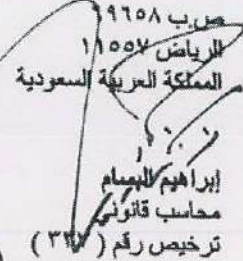 ص.ب ٦٩٦٥٨
الرياض ١١٥٥٧
المملكة العربية السعودية
إبراهيم البسام
محاسب قانوني
ترخيص رقم ( ٣٣٧ )